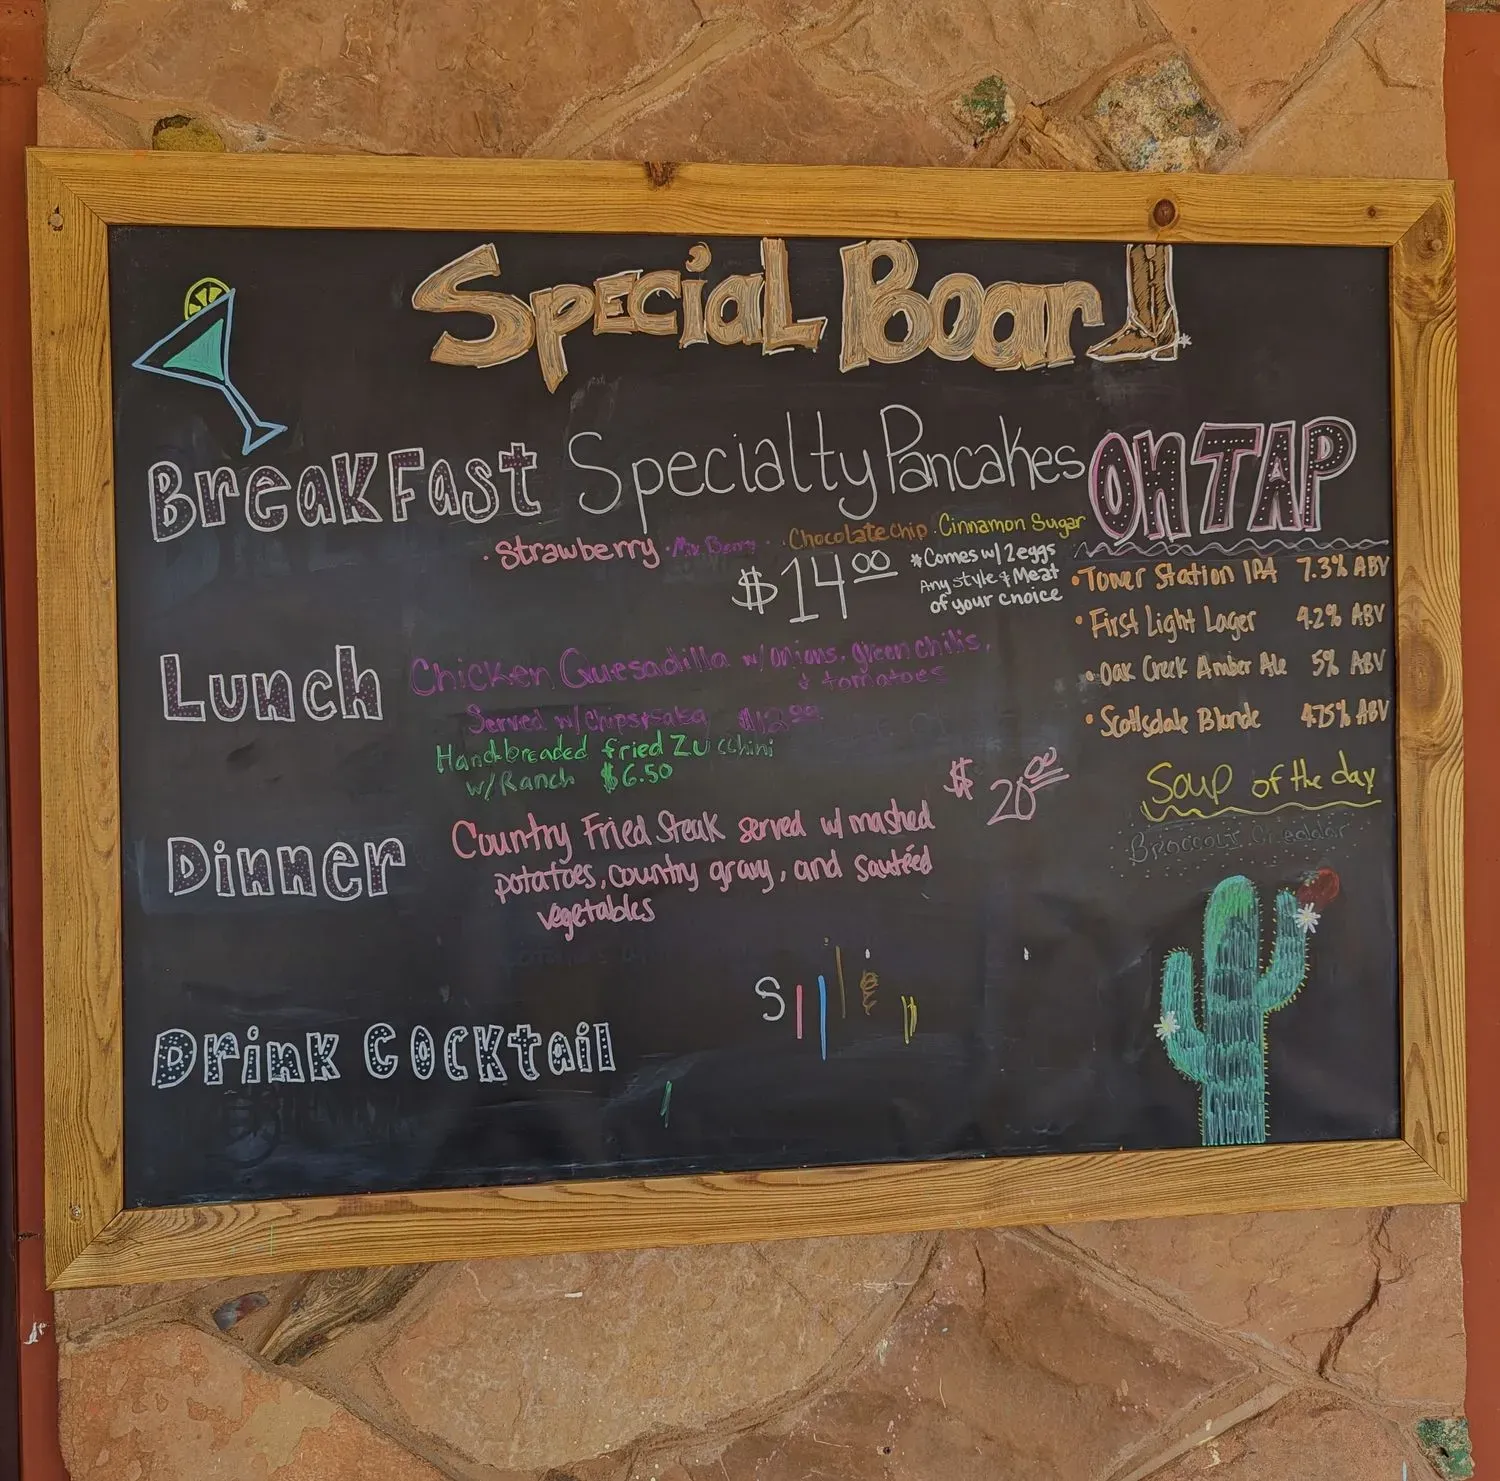 Special Boar
Breakfast Specialty Pancakes
· Strawberry · Mix Berry · Chocolate chip · Cinnamon Sugar
$14.00
*Comes w/ 2 eggs
Any style & Meat
of your choice
Lunch
Chicken Quesadilla w/ onions, green chilis,
& tomatoes
Served w/ chips & salsa $12.00
Hand-breaded fried Zucchini
w/ Ranch $6.50
Dinner
Country Fried Steak served w/ mashed
potatoes, country gravy, and sautéed
vegetables
$20.00
Drink Cocktail
ON TAP
• Tower Station IPA 7.3% ABV
• First Light Lager 4.2% ABV
• Oak Creek Amber Ale 5% ABV
• Scottsdale Blonde 4.75% ABV
Soup of the day
Broccoli Cheddar